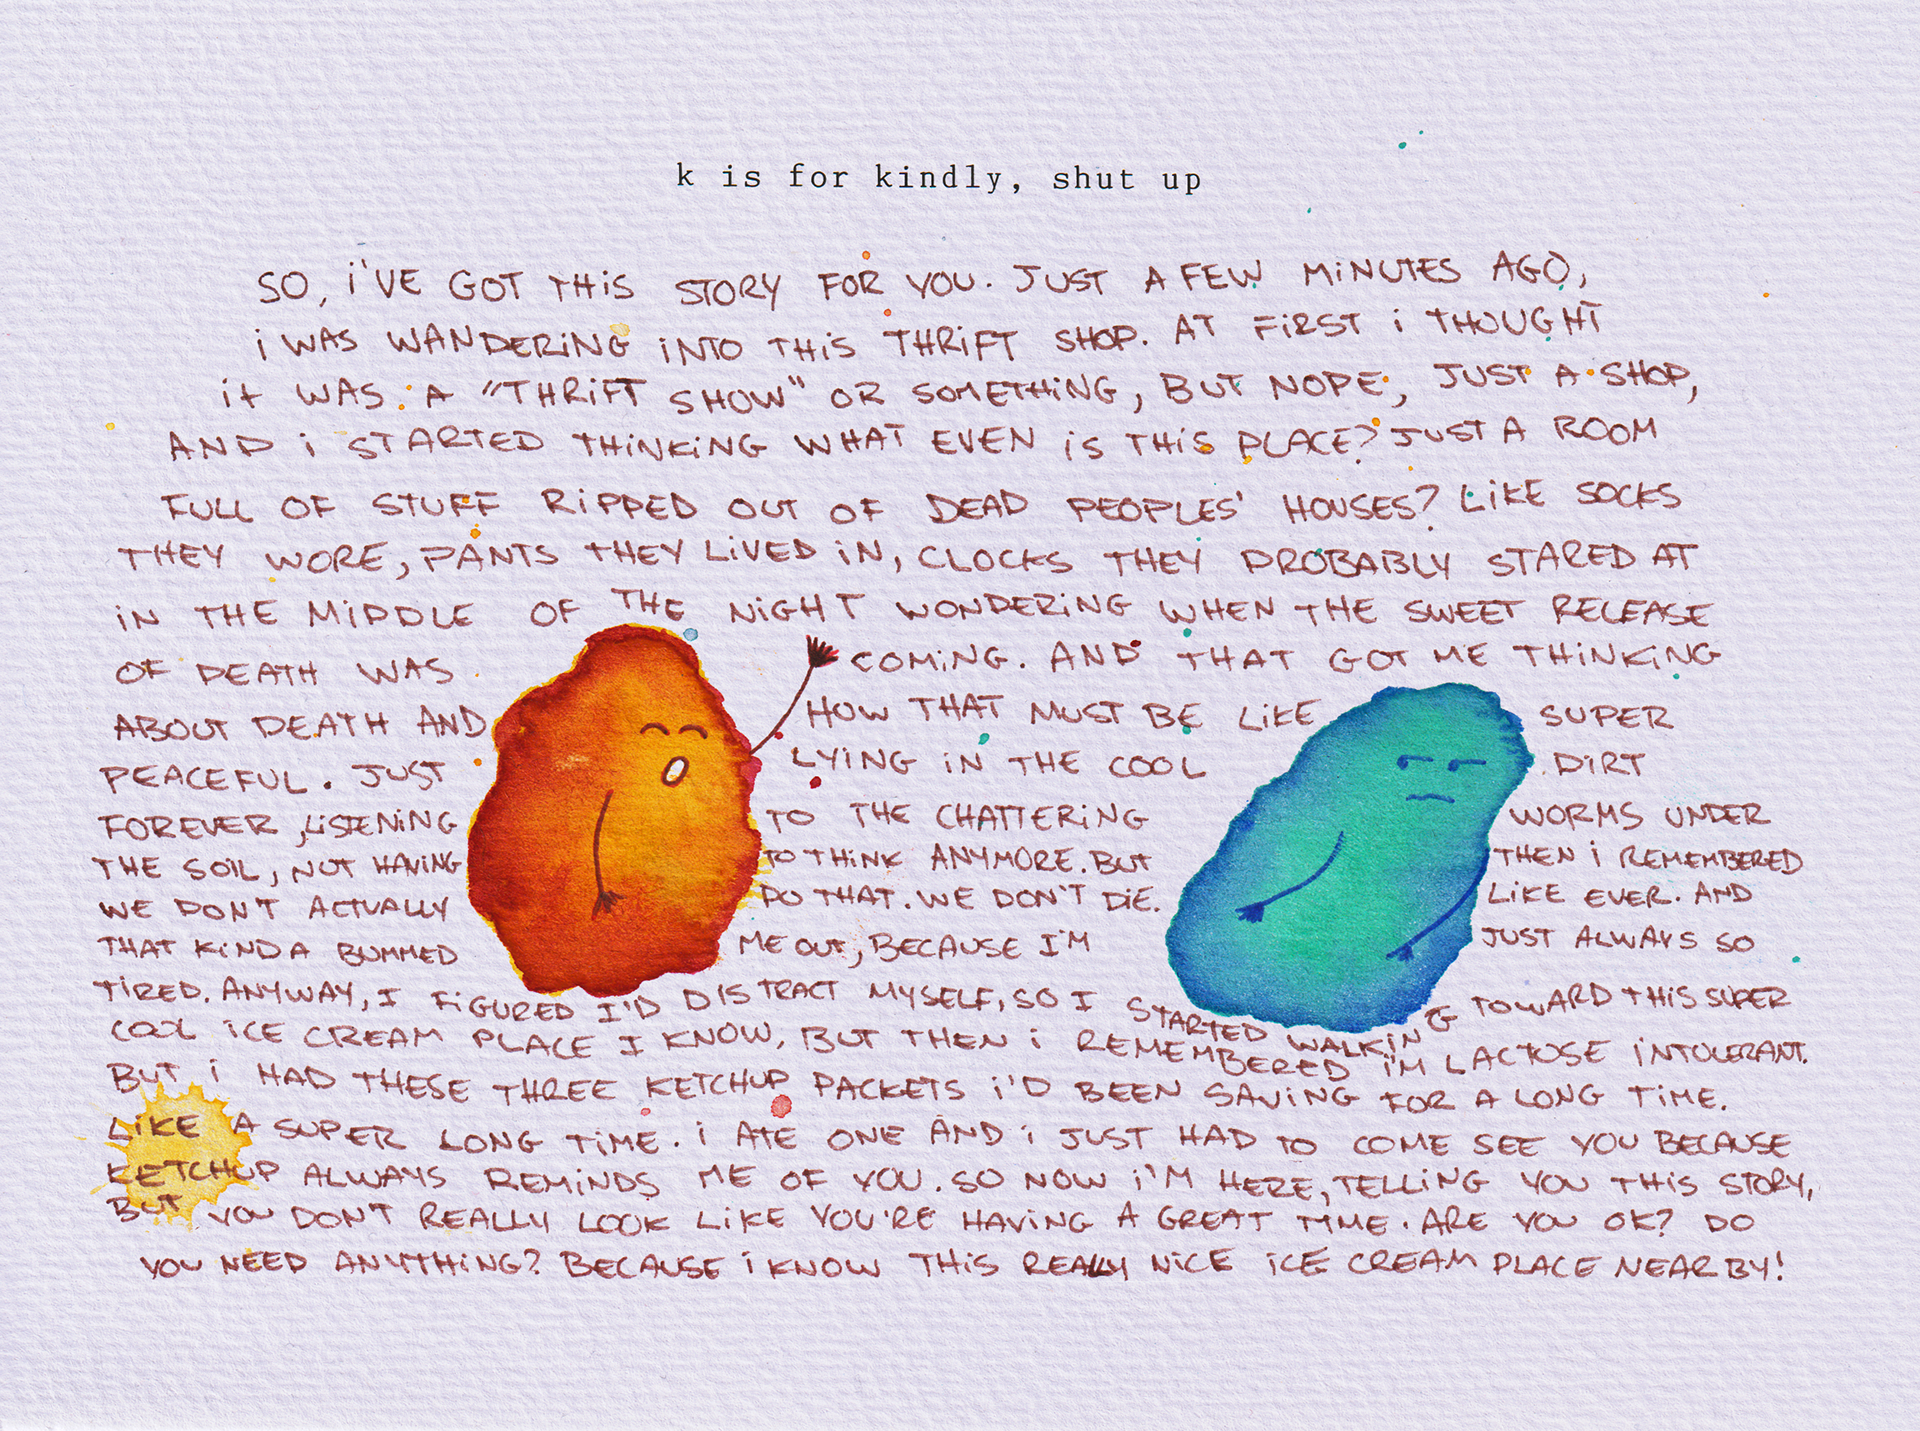 k is for kindly, shut up
SO, i'VE GOT THiS STORY FOR YOU. JUST A FEW MiNUTES AGO,
i WAS WANDERiNG iNTO THiS THRiFT SHOP. AT FiRST i THOUGHT
iT WAS A "THRiFT SHOW" OR SOMETHiNG, BUT NOPE, JUST A SHOP,
AND i STARTED THiNKiNG WHAT EVEN iS THiS PLACE? JUST A ROOM
FULL OF STUFF RiPPED OUT OF DEAD PEOPLES' HOUSES? LiKE SOCKS
THEY WORE, PANTS THEY LiVED iN, CLOCKS THEY PROBABLY STARED AT
iN THE MiDDLE OF THE NiGHT WONDERiNG WHEN THE SWEET RELEASE
OF DEATH WAS COMiNG. AND THAT GOT ME THiNKiNG
ABOUT DEATH AND HOW THAT MUST BE LiKE SUPER
PEACEFUL. JUST LYiNG iN THE COOL DiRT
FOREVER, LiSTENiNG TO THE CHATTERiNG WORMS UNDER
THE SOiL, NOT HAViNG TO THiNK ANYMORE. BUT THEN i REMEMBERED
WE DON'T ACTUALLY DO THAT. WE DON'T DiE. LiKE EVER. AND
THAT KiNDA BUMMED ME OUT, BECAUSE I'M JUST ALWAYS SO
TiRED. ANYWAY, I FiGURED I'D DISTRACT MYSELF, SO I STARTED WALKiNG TOWARD THiS SUPER
COOL iCE CREAM PLACE I KNOW, BUT THEN i REMEMBERED i'M LACTOSE iNTOLERANT.
BUT i HAD THESE THREE KETCHUP PACKETS i'D BEEN SAViNG FOR A LONG TiME.
LiKE A SUPER LONG TiME. i ATE ONE AND i JUST HAD TO COME SEE YOU BECAUSE
KETCHUP ALWAYS REMiNDS ME OF YOU. SO NOW i'M HERE, TELLiNG YOU THiS STORY,
BUT YOU DON'T REALLY LOOK LiKE YOU'RE HAViNG A GREAT TiME. ARE YOU OK? DO
YOU NEED ANYTHiNG? BECAUSE i KNOW THiS REALLY NiCE iCE CREAM PLACE NEARBY!